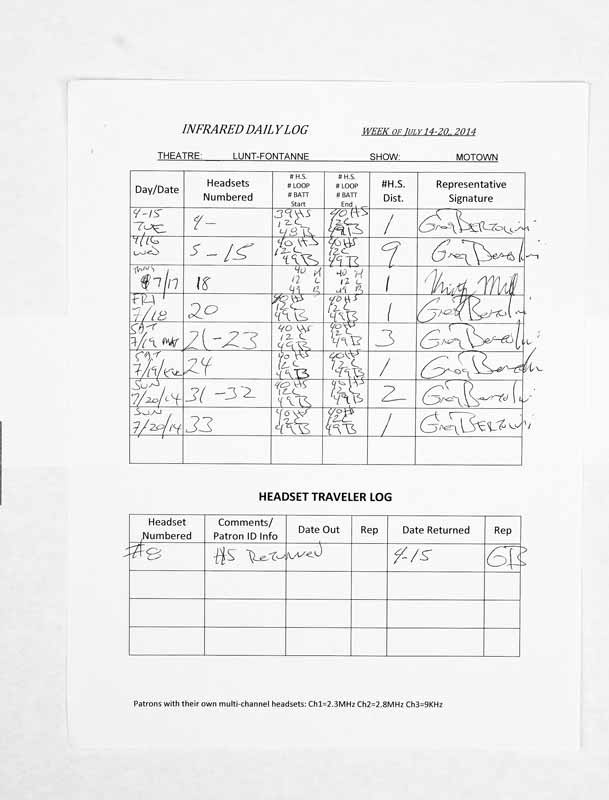 INFRARED DAILY LOG WEEK OF JULY 14-20, 2014
THEATRE: LUNT-FONTANNE SHOW: MOTOWN
Day/Date Headsets Numbered # H.S. # LOOP # BATT Start # H.S. # LOOP # BATT End #H.S. Dist. Representative Signature
4-15 TUE 4- 39HS 12C 48B 40HS 12C 49B 1 Greg BERTOLINI
4/16 WED 5-15 40HS 12C 49B 40HS 12C 49B 9 Greg Bertolini
THURS 7/17 18 40 H 12 C 49 B 40 H 12 C 49 B 1
FRI 7/18 20 40HS 12C 49B 40HS 12C 49B 1 Greg Bertolini
SAT 7/19 MAT 21-23 40 HS 12 C 49B 40HS 12C 49B 3 Greg Bertolini
SAT 7/19/EVE 24 40HS 12C 49B 40HS 12C 49B 1 Greg Bertolini
SUN 7/20/14 31-32 40HS 12C 49B 40HS 12C 49B 2 Greg Bertolini
SUN 7/20/14 33 40HS 12C 49B 40HS 12C 49B 1 Greg BERTOLINI
HEADSET TRAVELER LOG
Headset Numbered Comments/ Patron ID Info Date Out Rep Date Returned Rep
#8 HS Returned 4-15 GB
Patrons with their own multi-channel headsets: Ch1=2.3MHz Ch2=2.8MHz Ch3=9KHz